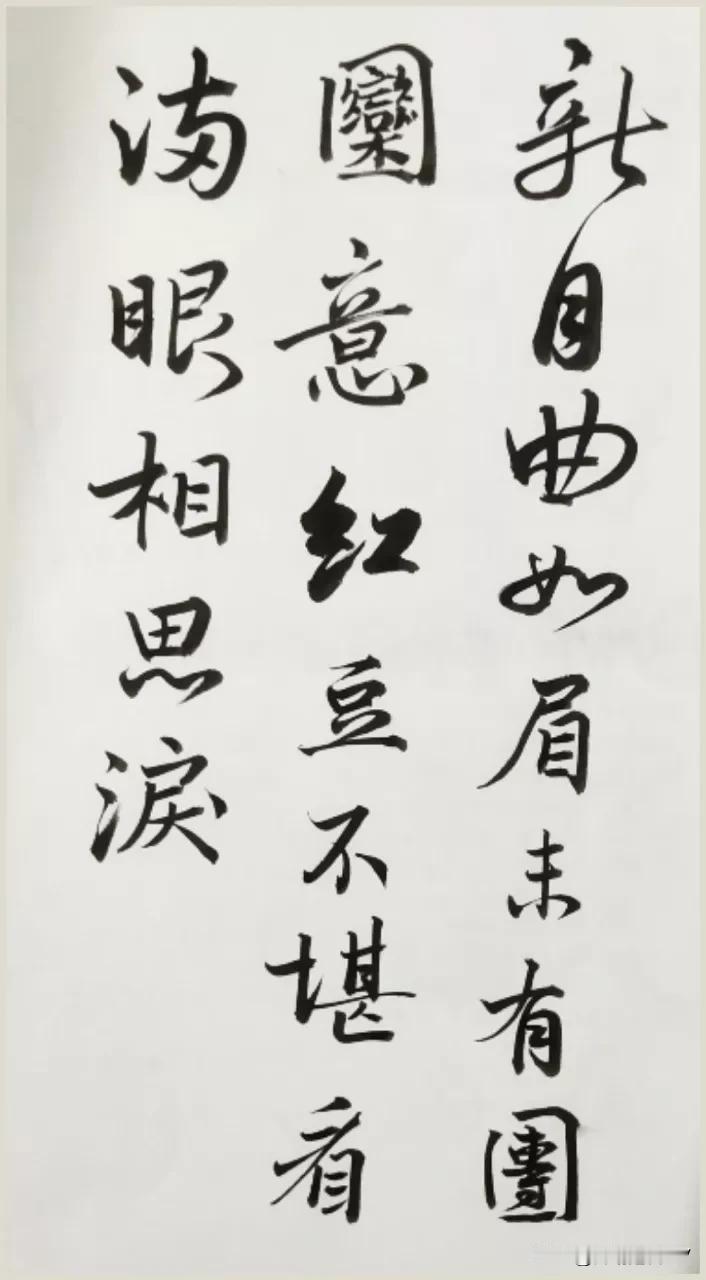 新月曲如眉未有團
圞意紅豆不堪看
滿眼相思淚